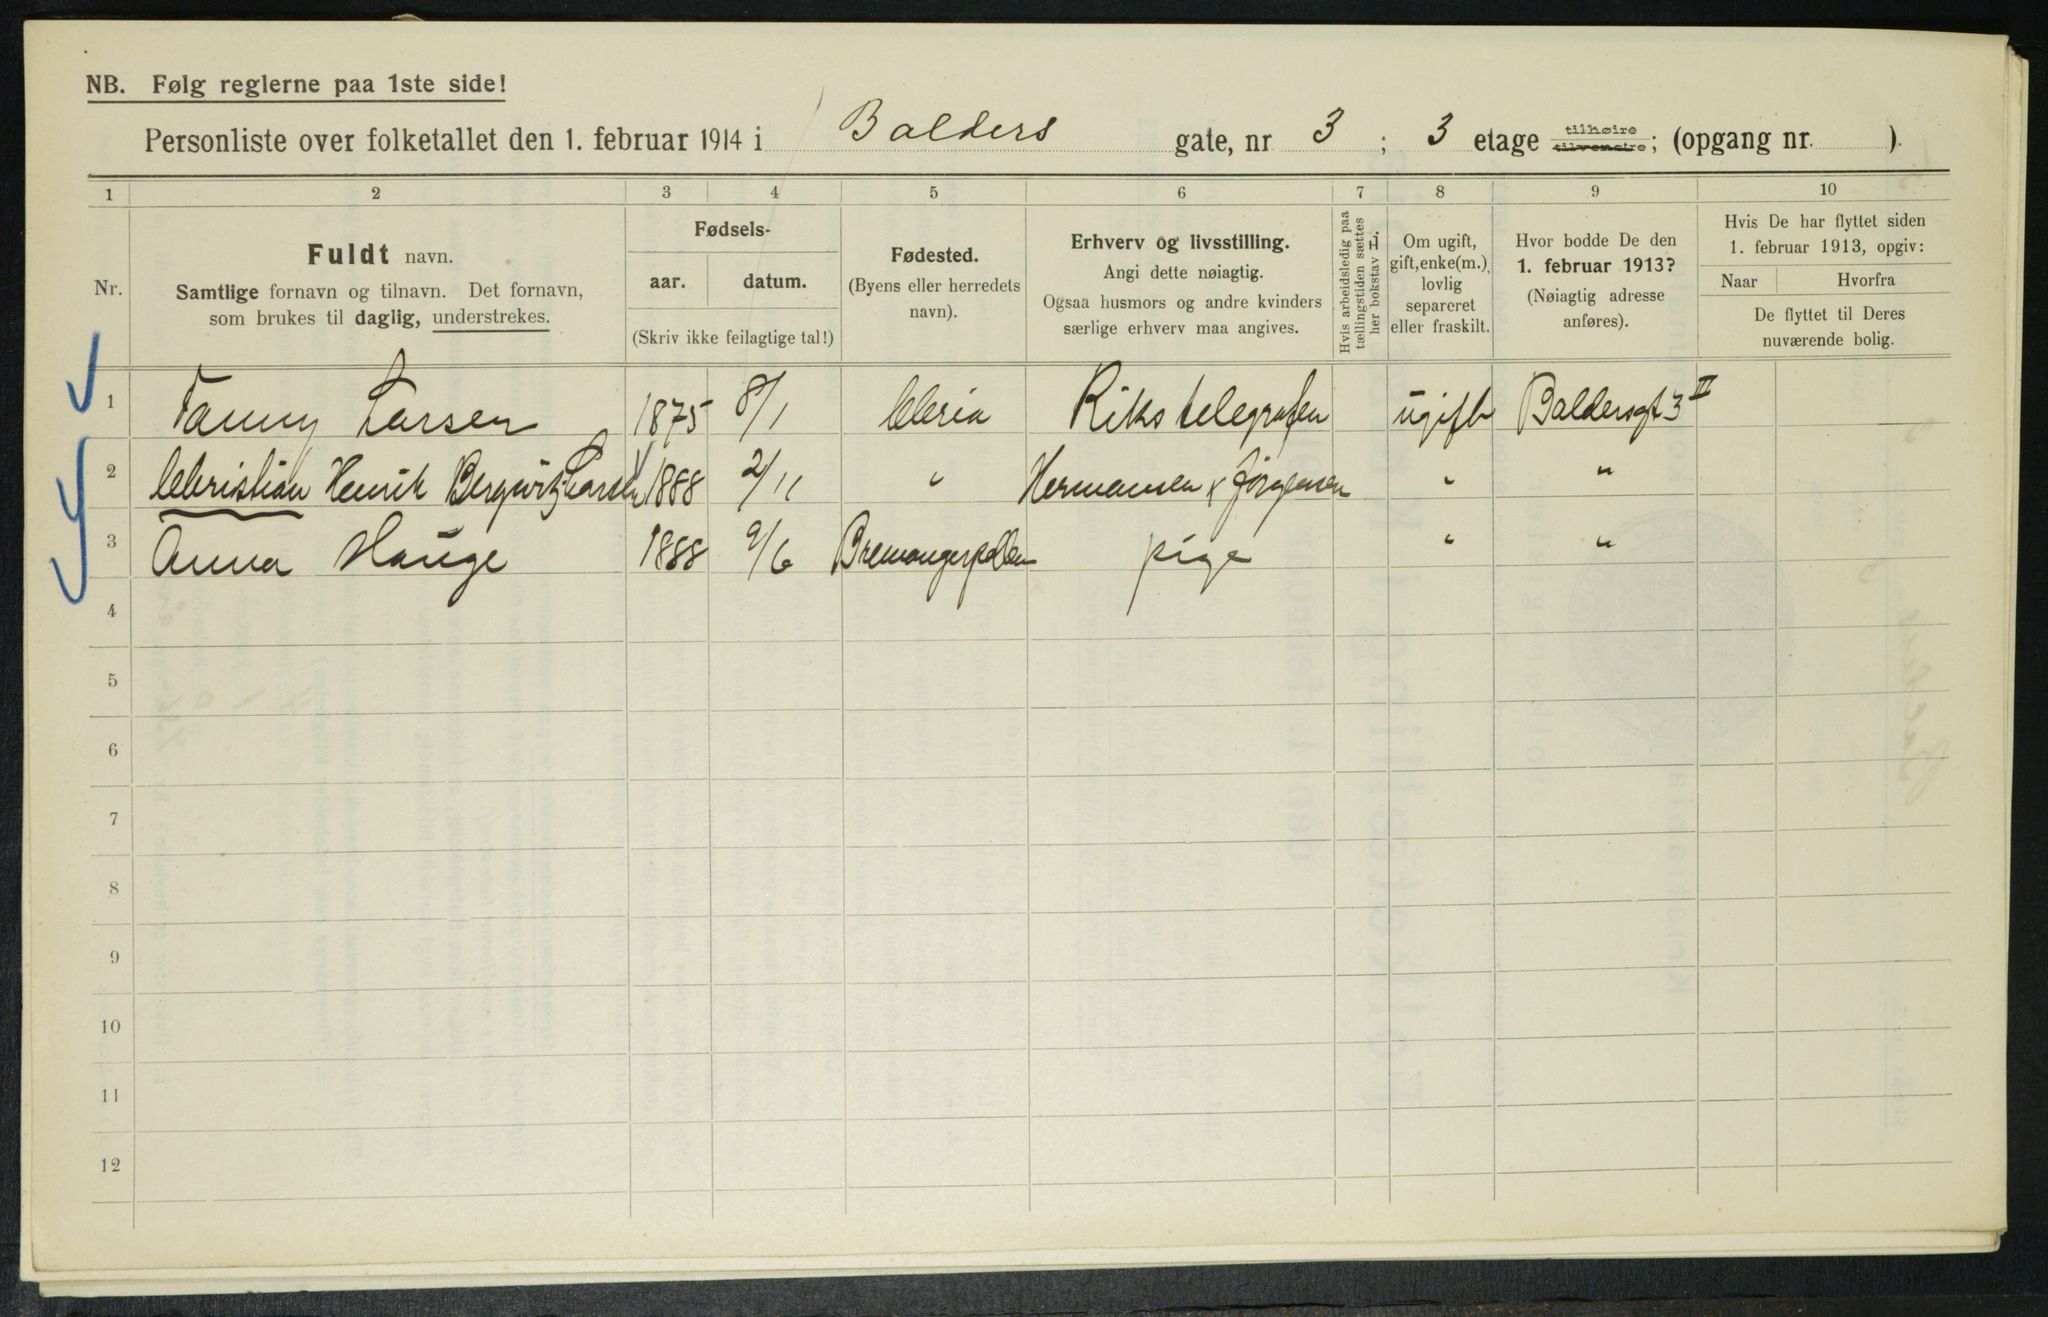 NB. Følg reglerne paa 1ste side!
Personliste over folketallet den 1. februar 1914 i Balders gate, nr 3 ; 3 etage tilhøire tilvenstre; (opgang nr. ).
1 2 3 4 5 6 7 8 9 10
Nr.
Fuldt navn.
Samtlige fornavn og tilnavn. Det fornavn,
som brukes til daglig, understrekes.
Fødsels-
aar. datum.
(Skriv ikke feilagtige tal!)
Fødested.
(Byens eller herredets
navn).
Erhverv og livsstilling.
Angi dette nøiagtig.
Ogsaa husmors og andre kvinders
særlige erhverv maa angives.
Hvis arbeidsledig paa
tællingstiden sættes
her bokstav L.
Om ugift,
gift, enke(m.),
lovlig
separeret
eller fraskilt.
Hvor bodde De den
1. februar 1913?
(Nøiagtig adresse
anføres).
Hvis De har flyttet siden
1. februar 1913, opgiv:
Naar Hvorfra
De flyttet til Deres
nuværende bolig.
1 Fanny Larsen 1875 8/1 Chria Rikstelegrafen ugift Baldersgt 3 III
2 Christian Henrik Bergwitz Larsen 1888 2/11 " Hermansen & Jörgensen " "
3 Anna Hauge 1888 9/6 Bremangerpollen pige " "
4
5
6
7
8
9
10
11
12